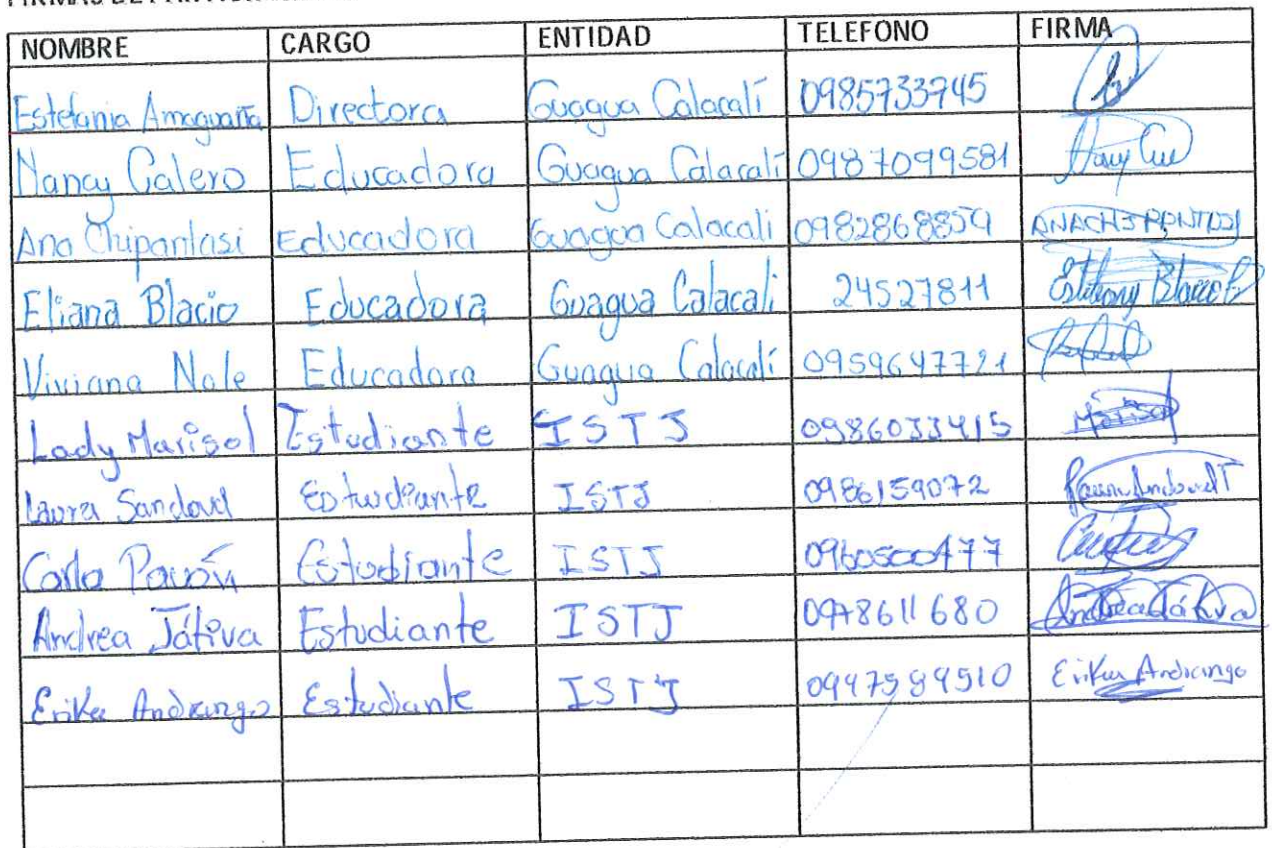 NOMBRE CARGO ENTIDAD TELEFONO FIRMA
Estefania Amaguaña Directora Guagua Calacalí 0985733745
Nancy Calero Educadora Guagua Calacalí 0987099581
Ana Chipantasi Educadora Guagua Calacali 0982868859
Eliana Blacio Educadora Guagua Calacali 24527811
Viviana Nole Educadora Guagua Calacalí 0959647721
Lady Marisol Estudiante ISTJ 0986033415 Marisol
Laura Sandoval Estudiante ISTJ 0986159072
Carla Pavón Estudiante ISTJ
Andrea Játiva Estudiante ISTJ 0978611680 Andrea Játiva
Erika Andrango Estudiante ISTJ 0947589510 Erika Andrango